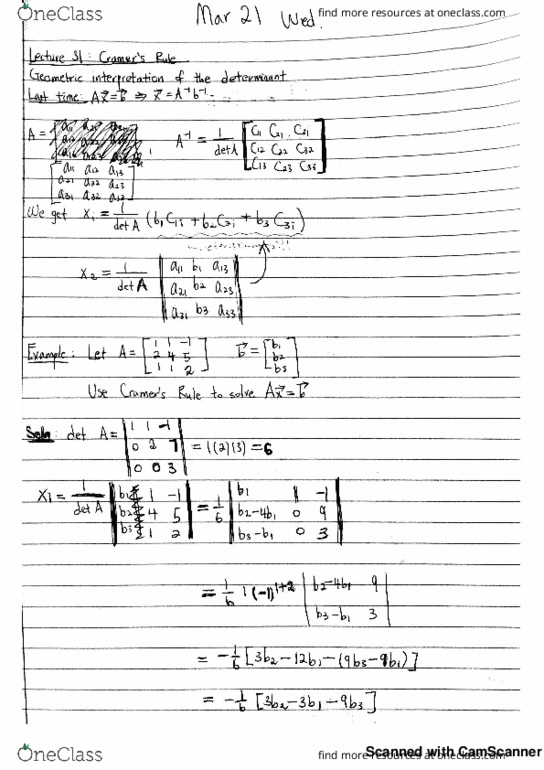 OneClass
find more resources at oneclass.com
Mar 21 Wed.
Lecture 31: Cramer's Rule
Geometric interpretation of the determinant
Last time: Ax⃗=b⃗ ⇒ x⃗=A⁻¹b⁻¹
A = [a11 a12 a13
a21 a22 a23
a31 a32 a33]
A⁻¹ = 1/detA [C11 C21 C31
C12 C22 C32
C13 C23 C33]
We get xi = 1/detA (b1C1i + b2C2i + b3C3i)
x2 = 1/detA |a11 b1 a13
a21 b2 a23
a31 b3 a33|
Example: Let A = [1 1 -1
2 4 5
1 1 2] b⃗ = [b1
b2
b3]
Use Cramer's Rule to solve Ax⃗=b⃗
Soln: det A = |1 1 -1
0 2 7
0 0 3| = 1(2)(3) = 6
x1 = 1/detA |b1 1 -1
b2 4 5
b3 1 2| = 1/6 |b1 1 -1
b2-4b1 0 9
b3-b1 0 3|
= 1/6 1(-1)^1+2 |b2-4b1 9
b3-b1 3|
= -1/6 [3b2-12b1-(9b3-9b1)]
= -1/6 [3b2-3b1-9b3]
OneClass
find more resources at oneclass.com
Scanned with CamScanner